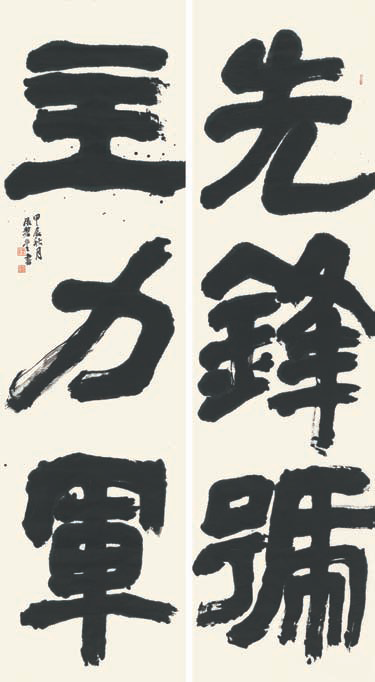 先鋒號
主力軍
甲辰秋月